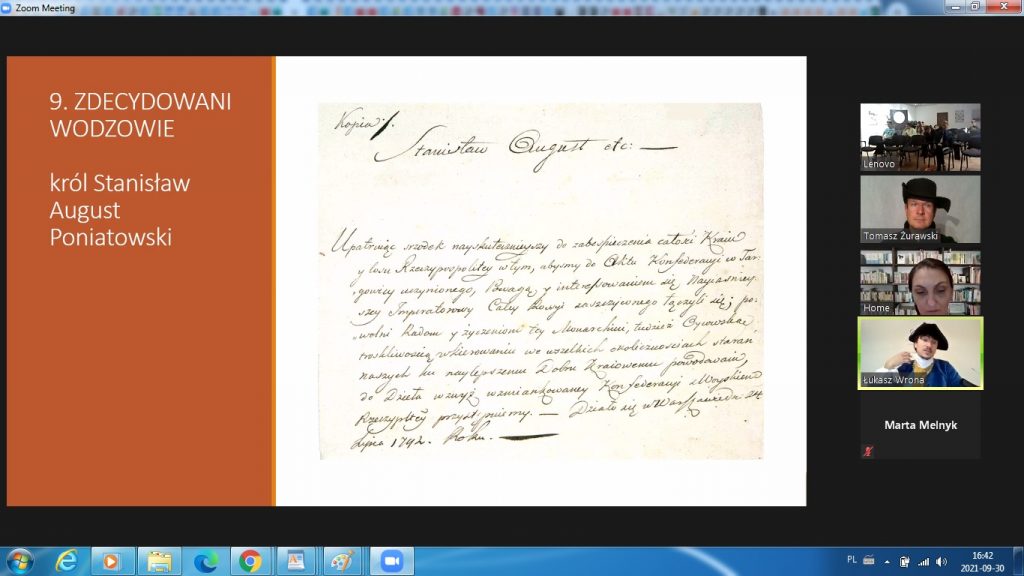 Zoom Meeting
9. ZDECYDOWANI
WODZOWIE
król Stanisław
August
Poniatowski
Kopia
Stanisław August etc: —
Upatruiąc srzodek nayskutecznieyszy do zabespieczenia całości Kraiu
y losu Rzeczypospolitey w tym, abysmy do Aktu Konfederacyi w Tar-
gowicy uczynionego, Powagą y interessowaniem się Nayiasniey-
szey Imperatorowy Całey Rossyi zaszczyconego łączyli się; po-
wolni Radom y życzeniom tey Monarchini, tudzież Oycowską
troskliwością w kierowaniu we wszelkich okolicznościach staran
naszych ku naylepszemu Dobru Kraiowemu powodowani,
do Dzieła wzwyż wzmiankowaney Konfederacyi z Woyskiem
Rzeczypltey przystępuiemy. — Działo się w Warszawie da 24
Lipca 1792. Roku. —
Lenovo
Tomasz Żurawski
Home
Łukasz Wrona
Marta Melnyk
PL
16:42
2021-09-30